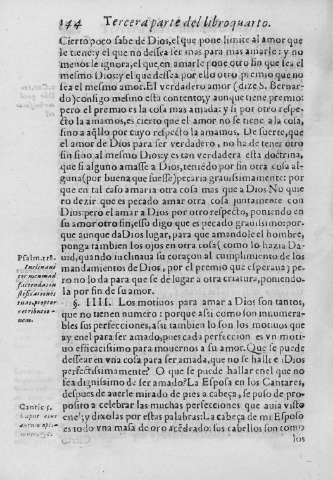 144 Tercera parte del libro quarto.
Cierto poco sabe de Dios, el que pone limite al amor que
le tiene: y el que no dessea ser mas para mas amarle: y no
menos le ignora, el que, en amarle pone otro fin que sea el
mesmo Dios: y el que dessea por ello otro premio que no
sea el mesmo amor. El verdadero amor (dize S. Bernar-
do) consigo mesmo esta contento, y aunque tiene premio:
pero el premio es la cosa mas amada, y si por otro respe-
cto la amamos, es cierto que el amor no se tiene a la cosa,
sino a aq̃llo por cuyo respecto la amamos. De suerte, que
el amor de Dios para ser verdadero, no ha de tener otro
fin sino al mesmo Dios: y es tan verdadera esta doctrina,
que si alguno amasse a Dios, teniẽdo por fin otra cosa al-
guna (por buena que fuesse) pecaria grauissimamente: por
que en tal caso amaria otra cosa mas que a Dios No quie
ro dezir que es pecado amar otra cosa juntamente con
Dios: pero el amar a Dios por otro respecto, poniendo en
su amor otro fin, esso digo que es pecado grauissimo: por-
que aunque da Dios lugar, para que amandole el hombre,
ponga tambien los ojos en otra cosa (como lo hazia Da-
uid, quando inclinaua su coraçon al cumplimiento de los
mandamientos de Dios, por el premio que esperaua) pe-
ro no lo da para que se de lugar a otra criatura, poniendo-
la por fin de su amor.
§. IIII. Los motiuos para amar a Dios son tantos,
que no tienen numero: porque assi como son innumera-
bles sus perfecciones, assi tambien lo son los motiuos que
ay en el para ser amado, pues cada perfeccion es vn moti-
uo efficacissimo para mouernos a su amor. Que se puede
dessear en vna cosa para ser amada, que no se halle en Dios
perfectissimamente? O que se puede hallar en el que no
sea dignissimo de ser amado? La Esposa en los Cantares,
despues de auerle mirado de pies a cabeça, se puso de pro-
posito a celebrar las muchas perfecciones que auia visto
en el, y dixolas por estas palabras: La cabeça de mi Esposo
es toda vna masa de oro acẽdrado: sus cabellos son como
los
Psalm. 118.
Inclinaui
cor meum ad
faciendas iu-
stificationes
tuas, propter
retributio-
nem.
Cantic. 5.
Caput eius
aurum opti-